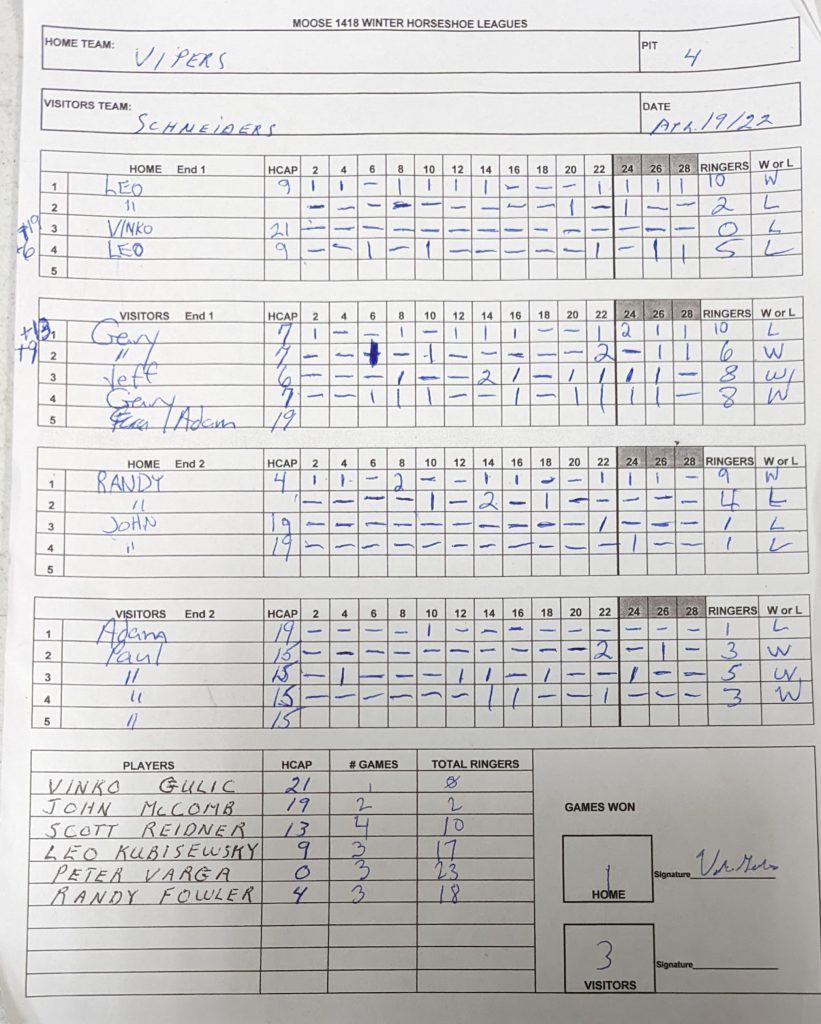 MOOSE 1418 WINTER HORSESHOE LEAGUES
HOME TEAM: VIPERS PIT 4
VISITORS TEAM: SCHNEIDERS DATE Apr. 19/22
HOME End 1 HCAP 2 4 6 8 10 12 14 16 18 20 22 24 26 28 RINGERS W or L
1 LEO 9 1 1 - 1 1 1 1 - - - 1 1 1 1 10 W
2 " - - - - - - - - - 1 - 1 - - 2 L
+19 3 VINKO 21 - - - - - - - - - - - - - - 0 L
-6 4 LEO 9 - - 1 - 1 - - - - - 1 - 1 1 5 L
5
VISITORS End 1 HCAP 2 4 6 8 10 12 14 16 18 20 22 24 26 28 RINGERS W or L
+13 1 Gary 7 1 - - 1 - 1 1 1 - - 1 2 1 1 10 L
+9 2 " 7 - - - 1 - - - - - 2 - 1 1 6 W
3 Jeff 6 - - - 1 - - 2 1 - 1 1 1 1 - 8 W
4 Gary 7 - - 1 1 1 - - 1 - 1 1 1 1 - 8 W
5 / Adam 19
HOME End 2 HCAP 2 4 6 8 10 12 14 16 18 20 22 24 26 28 RINGERS W or L
1 RANDY 4 1 1 - 2 - - 1 1 - - 1 1 1 - 9 W
2 " - - - - 1 - 2 - 1 - - - - - 4 L
3 JOHN 19 - - - - - - - - - - 1 - - - 1 L
4 " 19 - - - - - - - - - - - 1 - - 1 L
5
VISITORS End 2 HCAP 2 4 6 8 10 12 14 16 18 20 22 24 26 28 RINGERS W or L
1 Adam 19 - - - - 1 - - - - - - - - - 1 L
2 Paul 15 - - - - - - - - - - 2 - 1 - 3 W
3 " 15 - 1 - - - 1 1 - 1 - - 1 - - 5 W
4 " 15 - - - - - - 1 1 - - 1 - - - 3 W
5 " 15
PLAYERS HCAP # GAMES TOTAL RINGERS
VINKO GULIC 21 1 0
JOHN McCOMB 19 2 2
SCOTT REIDNER 13 4 10
LEO KUBISEWSKY 9 3 17
PETER VARGA 0 3 23
RANDY FOWLER 4 3 18
GAMES WON
1
HOME
Signature
3
VISITORS
Signature